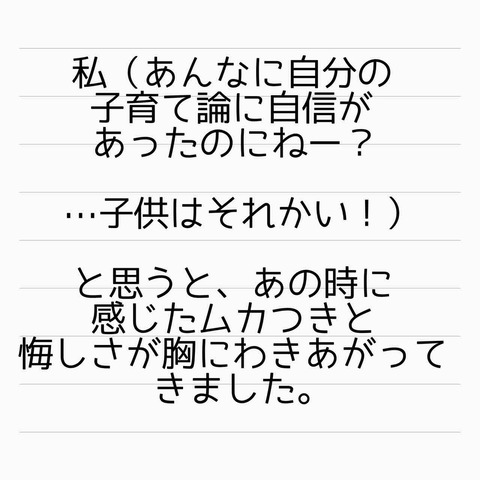 私（あんなに自分の
子育て論に自信が
あったのにねー？
…子供はそれかい！）
と思うと、あの時に
感じたムカつきと
悔しさが胸にわきあがって
きました。